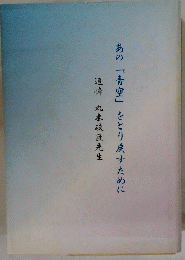 あの「青空」をとり戻すために
追悼 丸木政臣先生